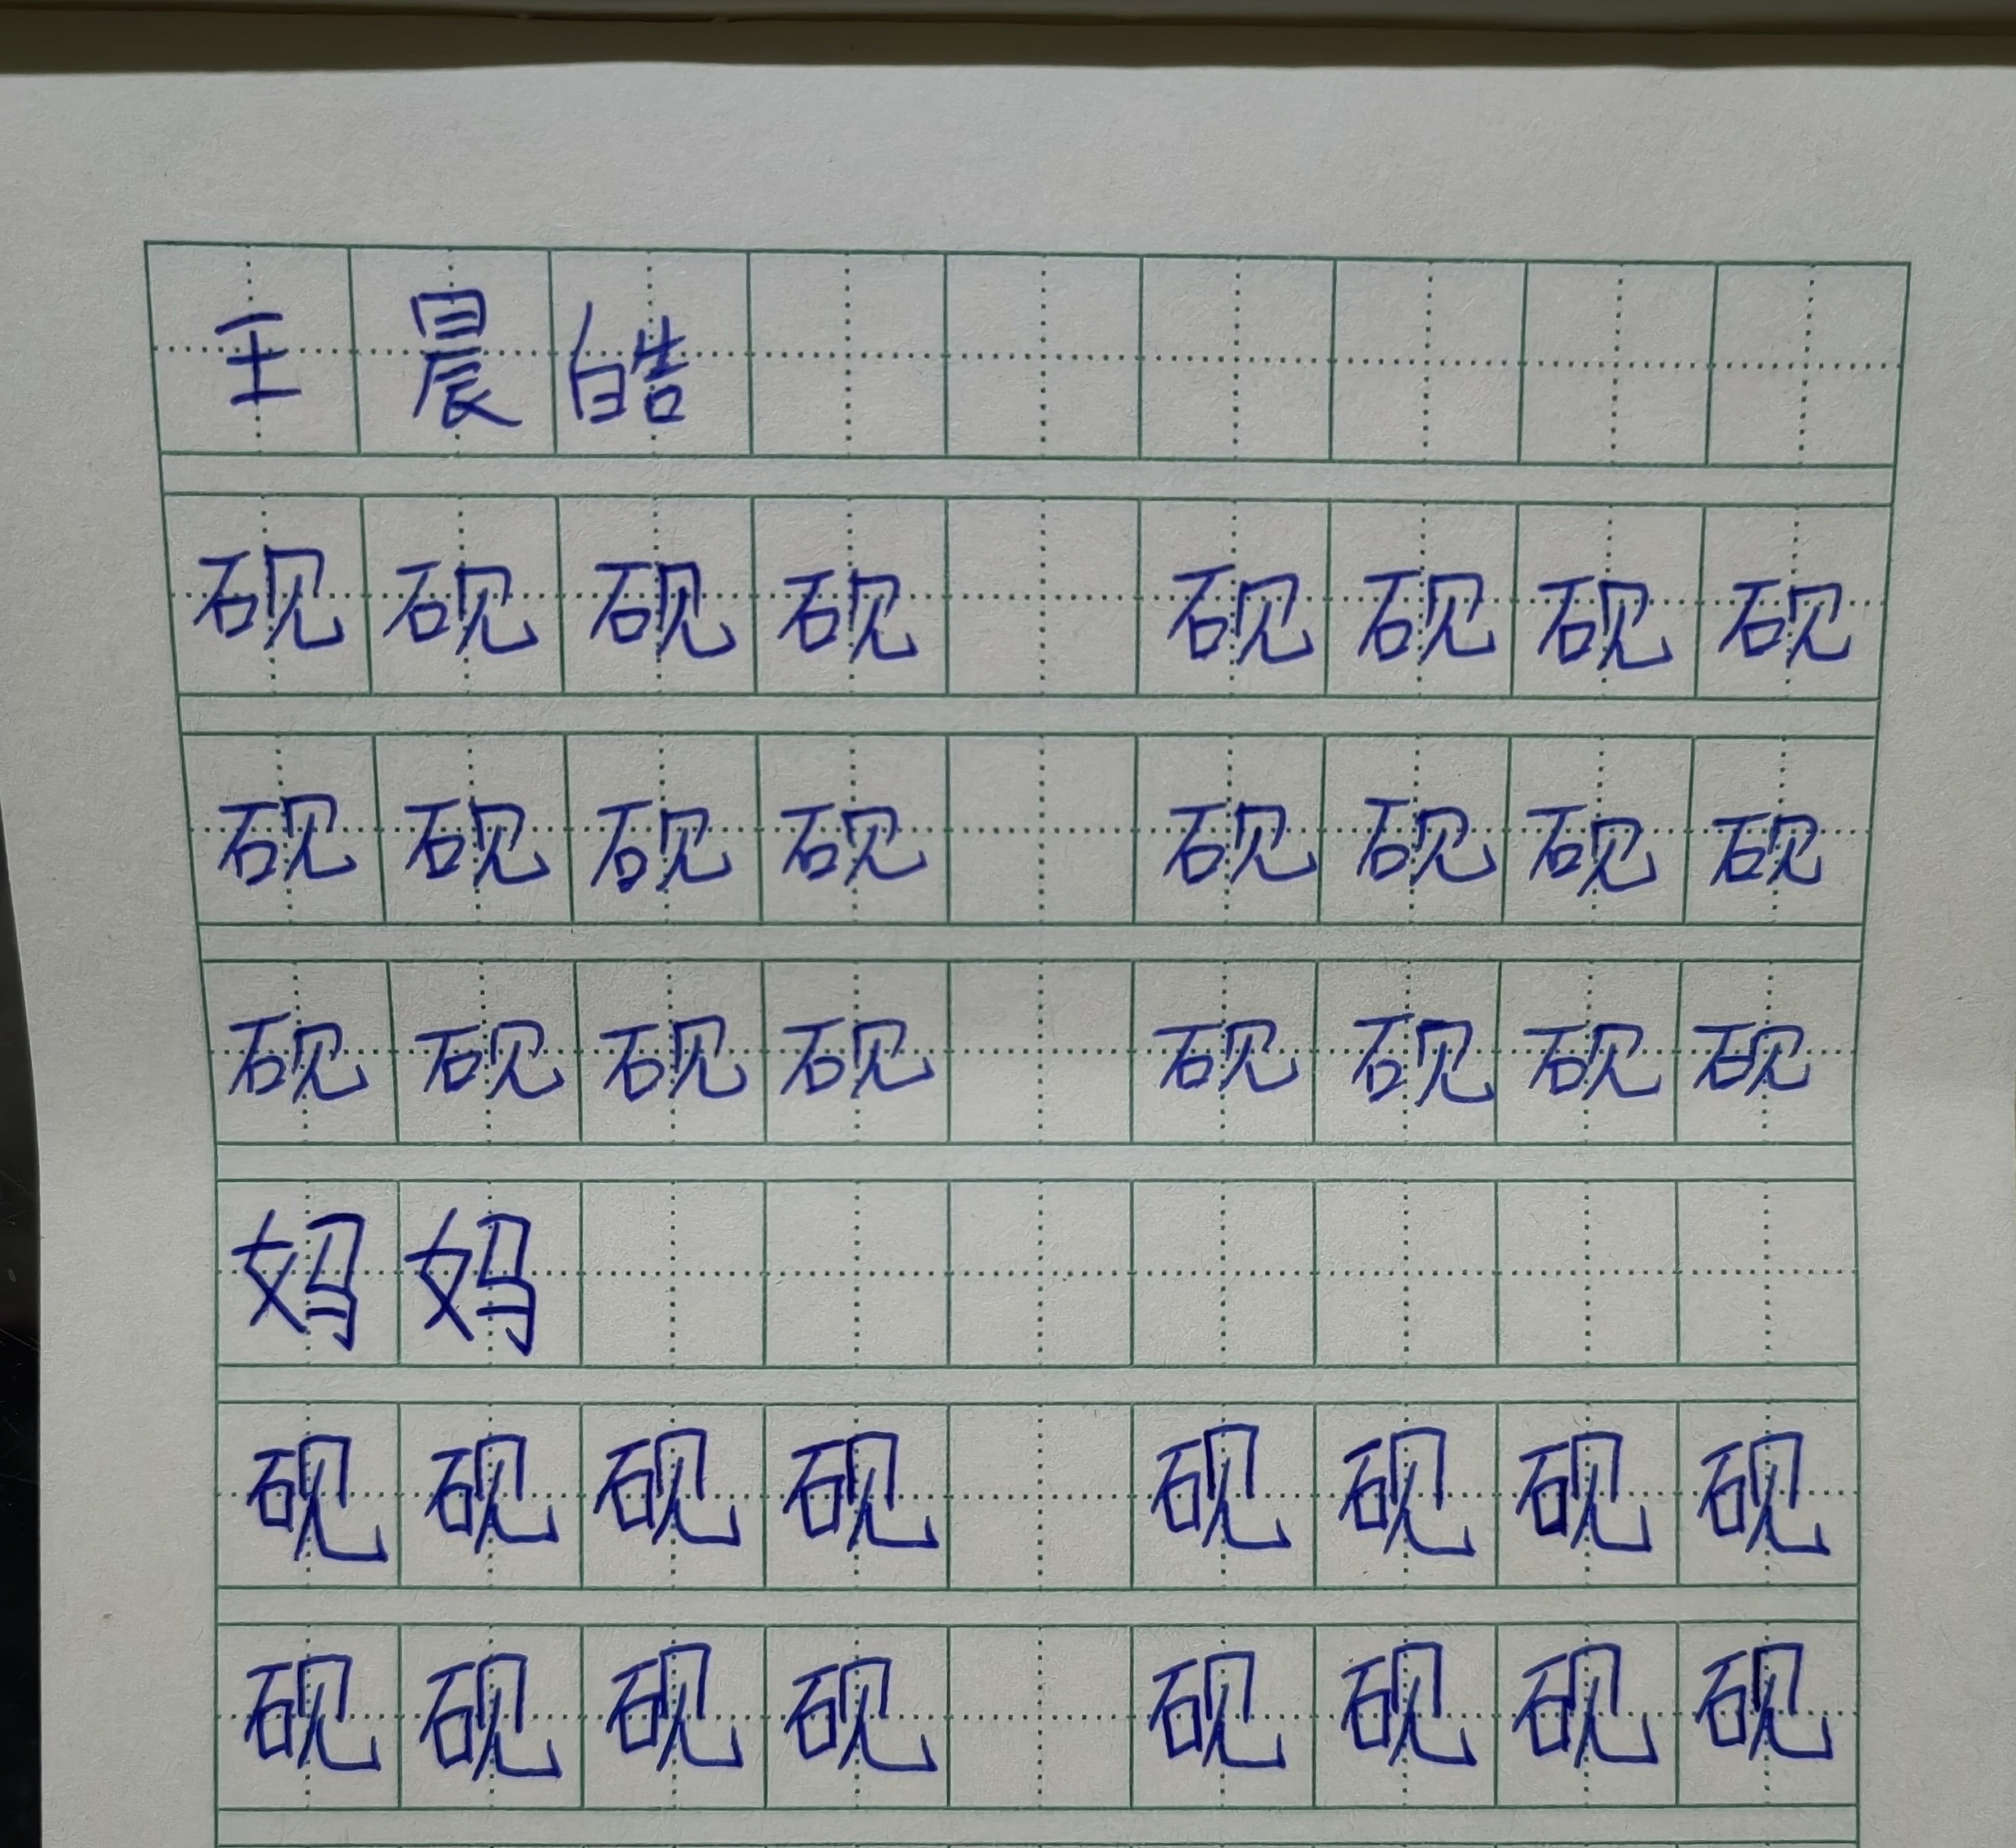 王晨皓
砚砚砚砚 砚砚砚砚
砚砚砚砚 砚砚砚砚
砚砚砚砚 砚砚砚砚
妈妈
砚砚砚砚 砚砚砚砚
砚砚砚砚 砚砚砚砚